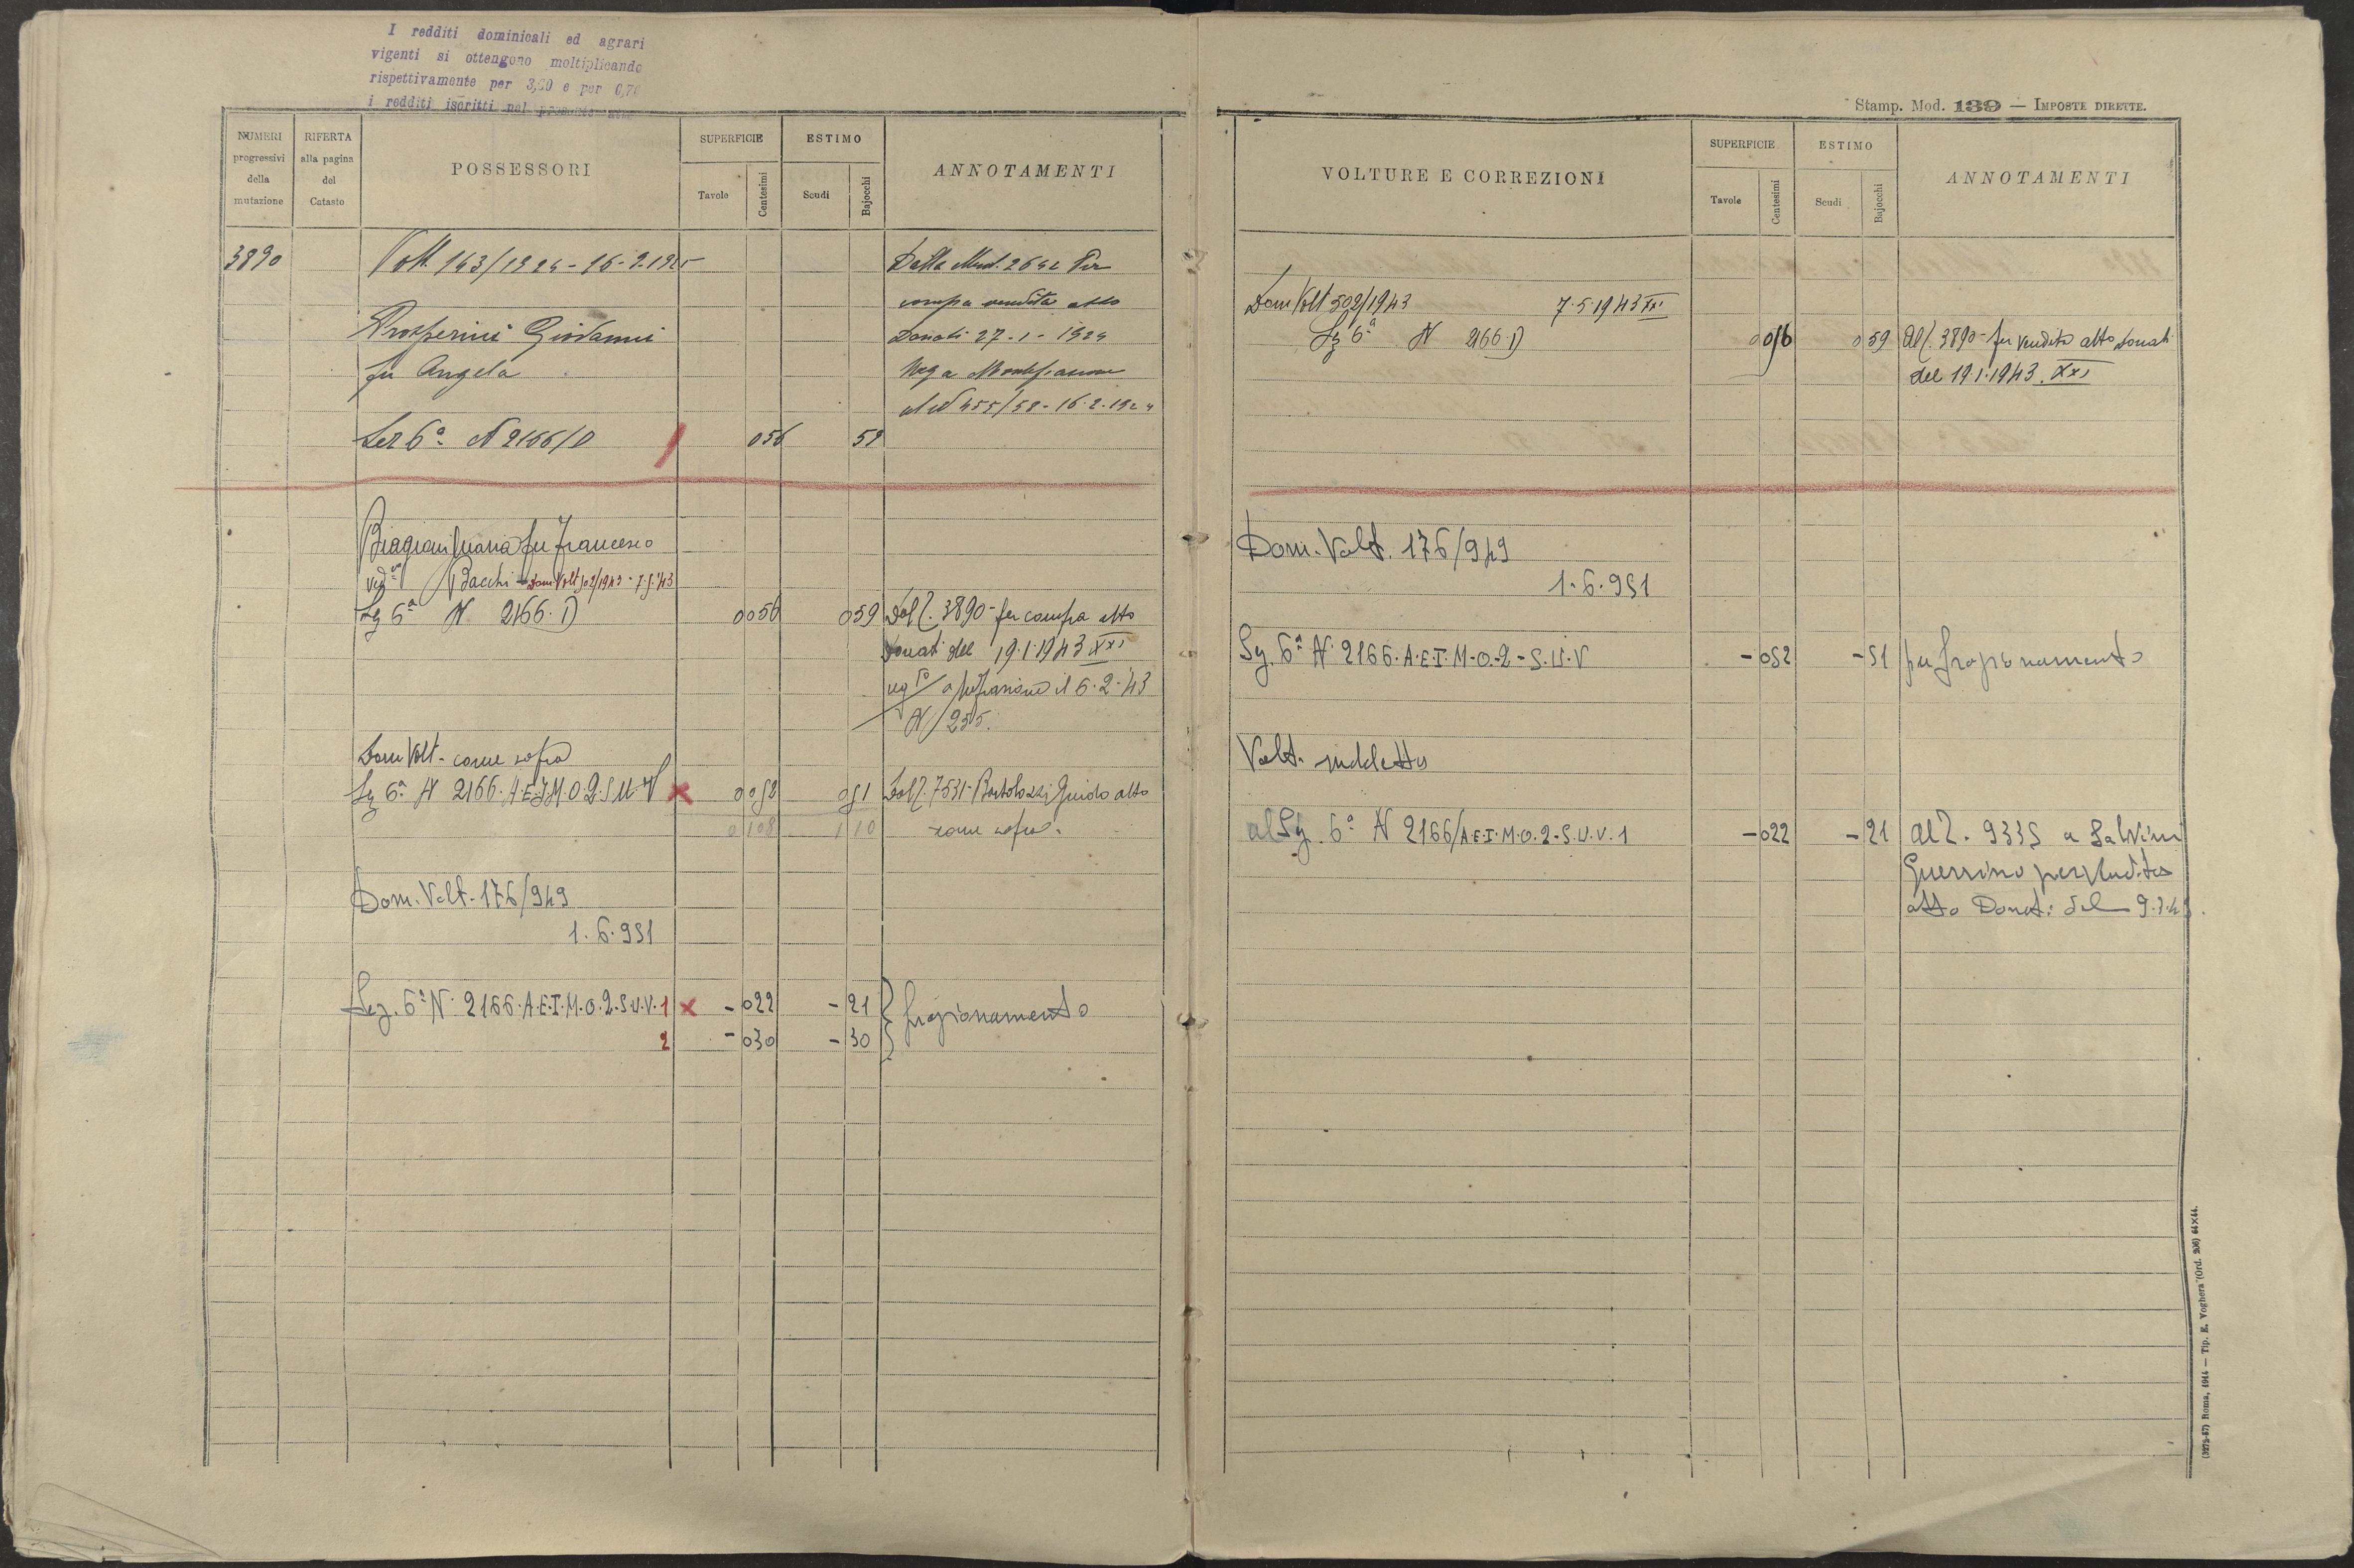 I redditi dominicali ed agrari
vigenti si ottengono moltiplicando
rispettivamente per 3,20 e per 0,70
i redditi iscritti nel presente
NUMERI progressivi della mutazione
RIFERTA alla pagina del Catasto
POSSESSORI
SUPERFICIE
Tavole
Centesimi
ESTIMO
Scudi
Bajocchi
ANNOTAMENTI
3890 Volt. 143/1924 - 16-2-1925 Dalla Mut. 2642 Per
compra vendita atto
Prosperini Giovanni Donati 27-1-1924
fu Angelo Reg a Montefiascone
455/58-16-2-1924
Sez 6ª N 2166/D 056 59
Biagioni Maria fu Francesco
ved. Bacchi - Dom. Volt 502/1943 - 7.5.43
Sez 6ª N 2166. D 0056 059 Dal P. 3890 - per compra atto
Donati del 19.1.1943 XXI
il 6.2.43
N/255.
Dom Volt - come sopra
Sez 6ª N 2166. A.E.I.M.O.Q.S.U.V × 0052 051 Dal P. 7531 - Bartolozzi Guido atto
0108 1 10 come sopra.
Dom. Volt. 176/949
1.6.951
Sez. 6ª N. 2166. A.E.I.M.O.Q.S.U.V. 1 × - 022 - 21 frazionamento
2 - 030 - 30
Stamp. Mod. 139 — IMPOSTE DIRETTE.
VOLTURE E CORREZIONI
SUPERFICIE
Tavole
Centesimi
ESTIMO
Scudi
Bajocchi
ANNOTAMENTI
Dom Volt 502/1943 7.5.1943 XXI
Sez 6ª N 2166. D 0056 059 Al P. 3890 - per vendita atto Donati
del 19.1.1943. XXI
Dom. Volt. 176/949
1.6.951
Sez. 6ª N. 2166. A.E.I.M.O.Q.S.U.V - 052 - 51 per frazionamento
Volt. suddetta
al Sez. 6ª N 2166/A.E.I.M.O.Q.S.U.V. 1 - 022 - 21 Al P. 9335 a Salvini
Guerrino per vendita
atto Donati del
(3272-57) Roma, 1914 — Tip. E. Voghera (Ord. 206) 64×44.